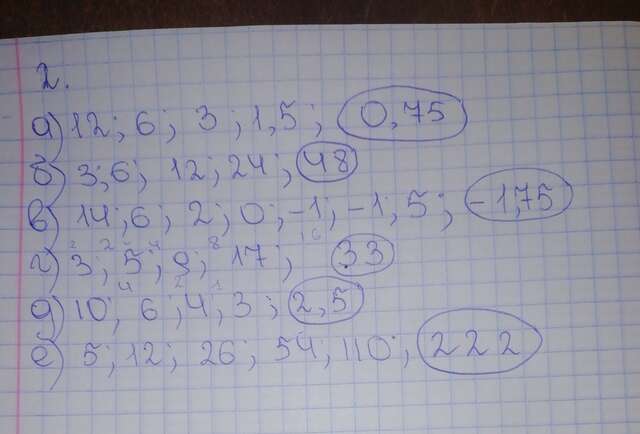 2.
а) 12; 6; 3; 1,5; 0,75
б) 3; 6; 12; 24; 48
в) 14; 6; 2; 0; -1; -1; 5; -1,75
2 2 4 8 16
г) 3; 5; 9; 17; 33
4 2 1
д) 10; 6; 4; 3; 2,5
е) 5; 12; 26; 54; 110; 222